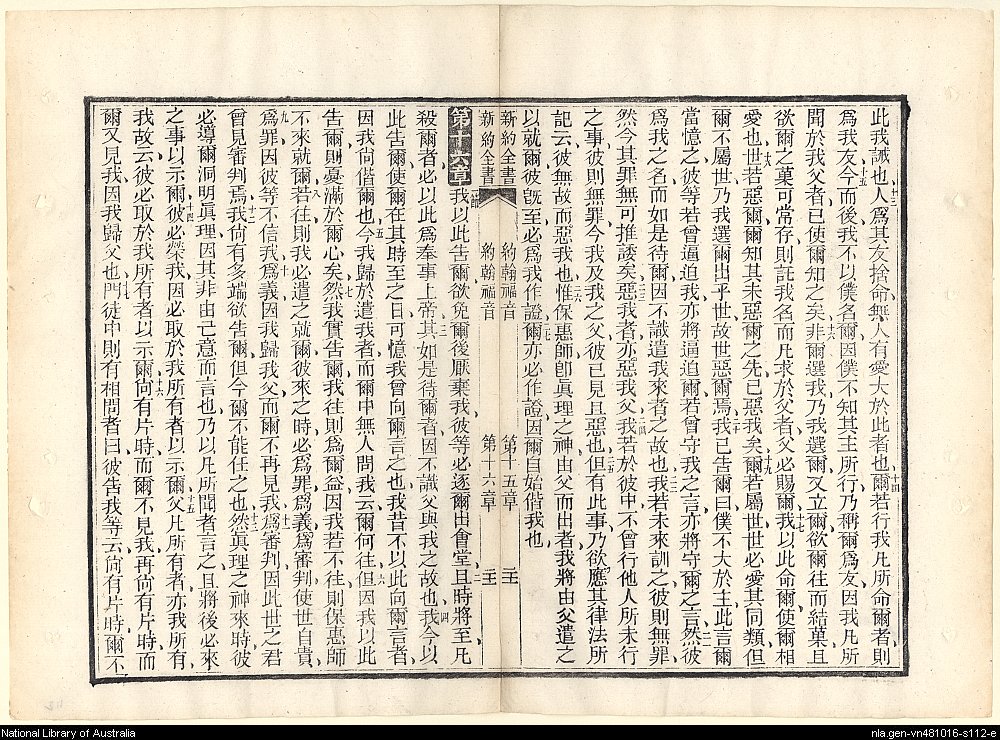 此我誡也人爲其友捨命無人有愛大於此者也爾若行我凡所命爾者則
爲我友今而後我不以僕名爾因僕不知其主所行乃稱爾爲友因我凡所
聞於我父者已使爾知之矣非爾選我乃我選爾又立爾欲爾往而結菓且
欲爾之菓可常存則託我名而凡求於父者父必賜爾我以此命爾使爾相
愛也世若惡爾爾知其未惡爾之先已惡我矣爾若屬世世必愛其同類但
爾不屬世乃我選爾出乎世故世惡爾焉我已告爾曰僕不大於主此言爾
當憶之彼等若曾逼迫我亦將逼迫爾若曾守我之言亦將守爾之言然彼
爲我之名而如是待爾因不識遣我來者之故也我若未來訓之彼則無罪
然今其罪無可推諉矣惡我者亦惡我父我若於彼中不曾行他人所未行
之事彼則無罪今我及我之父彼已見且惡也但有此事乃欲應其律法所
記云彼無故而惡我也惟保惠師卽眞理之神由父而出者我將由父遣之
以就爾彼旣至必爲我作證爾亦必作證因爾自始偕我也
新約全書 約翰福音 第十五章
新約全書 約翰福音 第十六章
第十六章 我以此告爾欲免爾後厭棄我彼等必逐爾出會堂且時將至凡
殺爾者必以此爲奉事上帝其如是待爾者因不識父與我之故也我今以
此告爾使爾在其時至之日可憶我曾向爾言之也我昔不以此向爾言者
因我尙偕爾也今我歸於遣我者而爾中無人問我云爾何往但因我以此
告爾則憂滿於爾心矣然我實告爾我往則爲爾益因我若不往則保惠師
不來就爾若往則我必遣之就爾彼來之時必爲罪爲義爲審判使世自責
爲罪因彼等不信我爲義因我歸我父而爾不再見我爲審判因此世之君
曾見審判焉我尙有多端欲告爾但今爾不能任之也然眞理之神來時彼
必導爾洞明眞理因其非由己意而言也乃以凡所聞者言之且將後必來
之事以示爾彼必榮我因必取於我所有者以示爾父凡所有者亦我所有
我故云彼必取於我所有者以示爾尙有片時而爾不見我再尙有片時而
爾又見我因我歸父也門徒中則有相問者曰彼告我等云尙有片時爾不
National Library of Australia
nla.gen-vn481016-s112-e